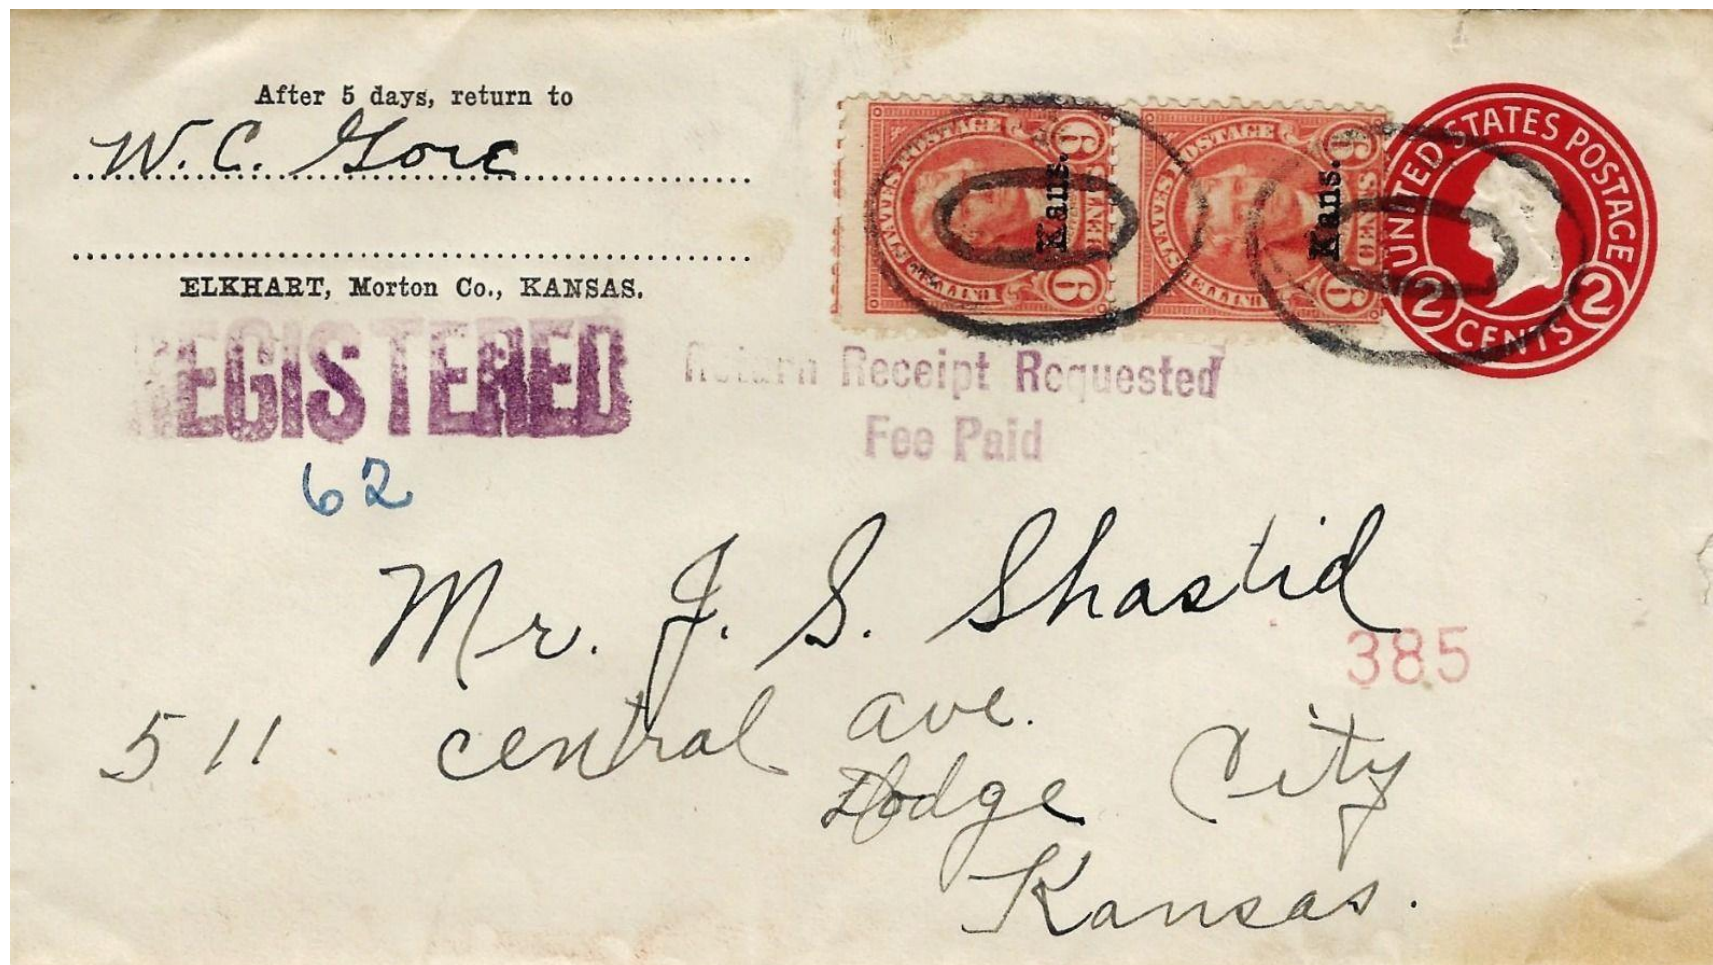 After 5 days, return to
W. C. Gore
ELKHART, Morton Co., KANSAS.
UNITED STATES POSTAGE
2 CENTS 2
6 CENTS 6
Kans.
6 CENTS 6
Kans.
REGISTERED
Return Receipt Requested
Fee Paid
62
Mr. J. S. Shastid
385
511 Central Ave.
Dodge City
Kansas.